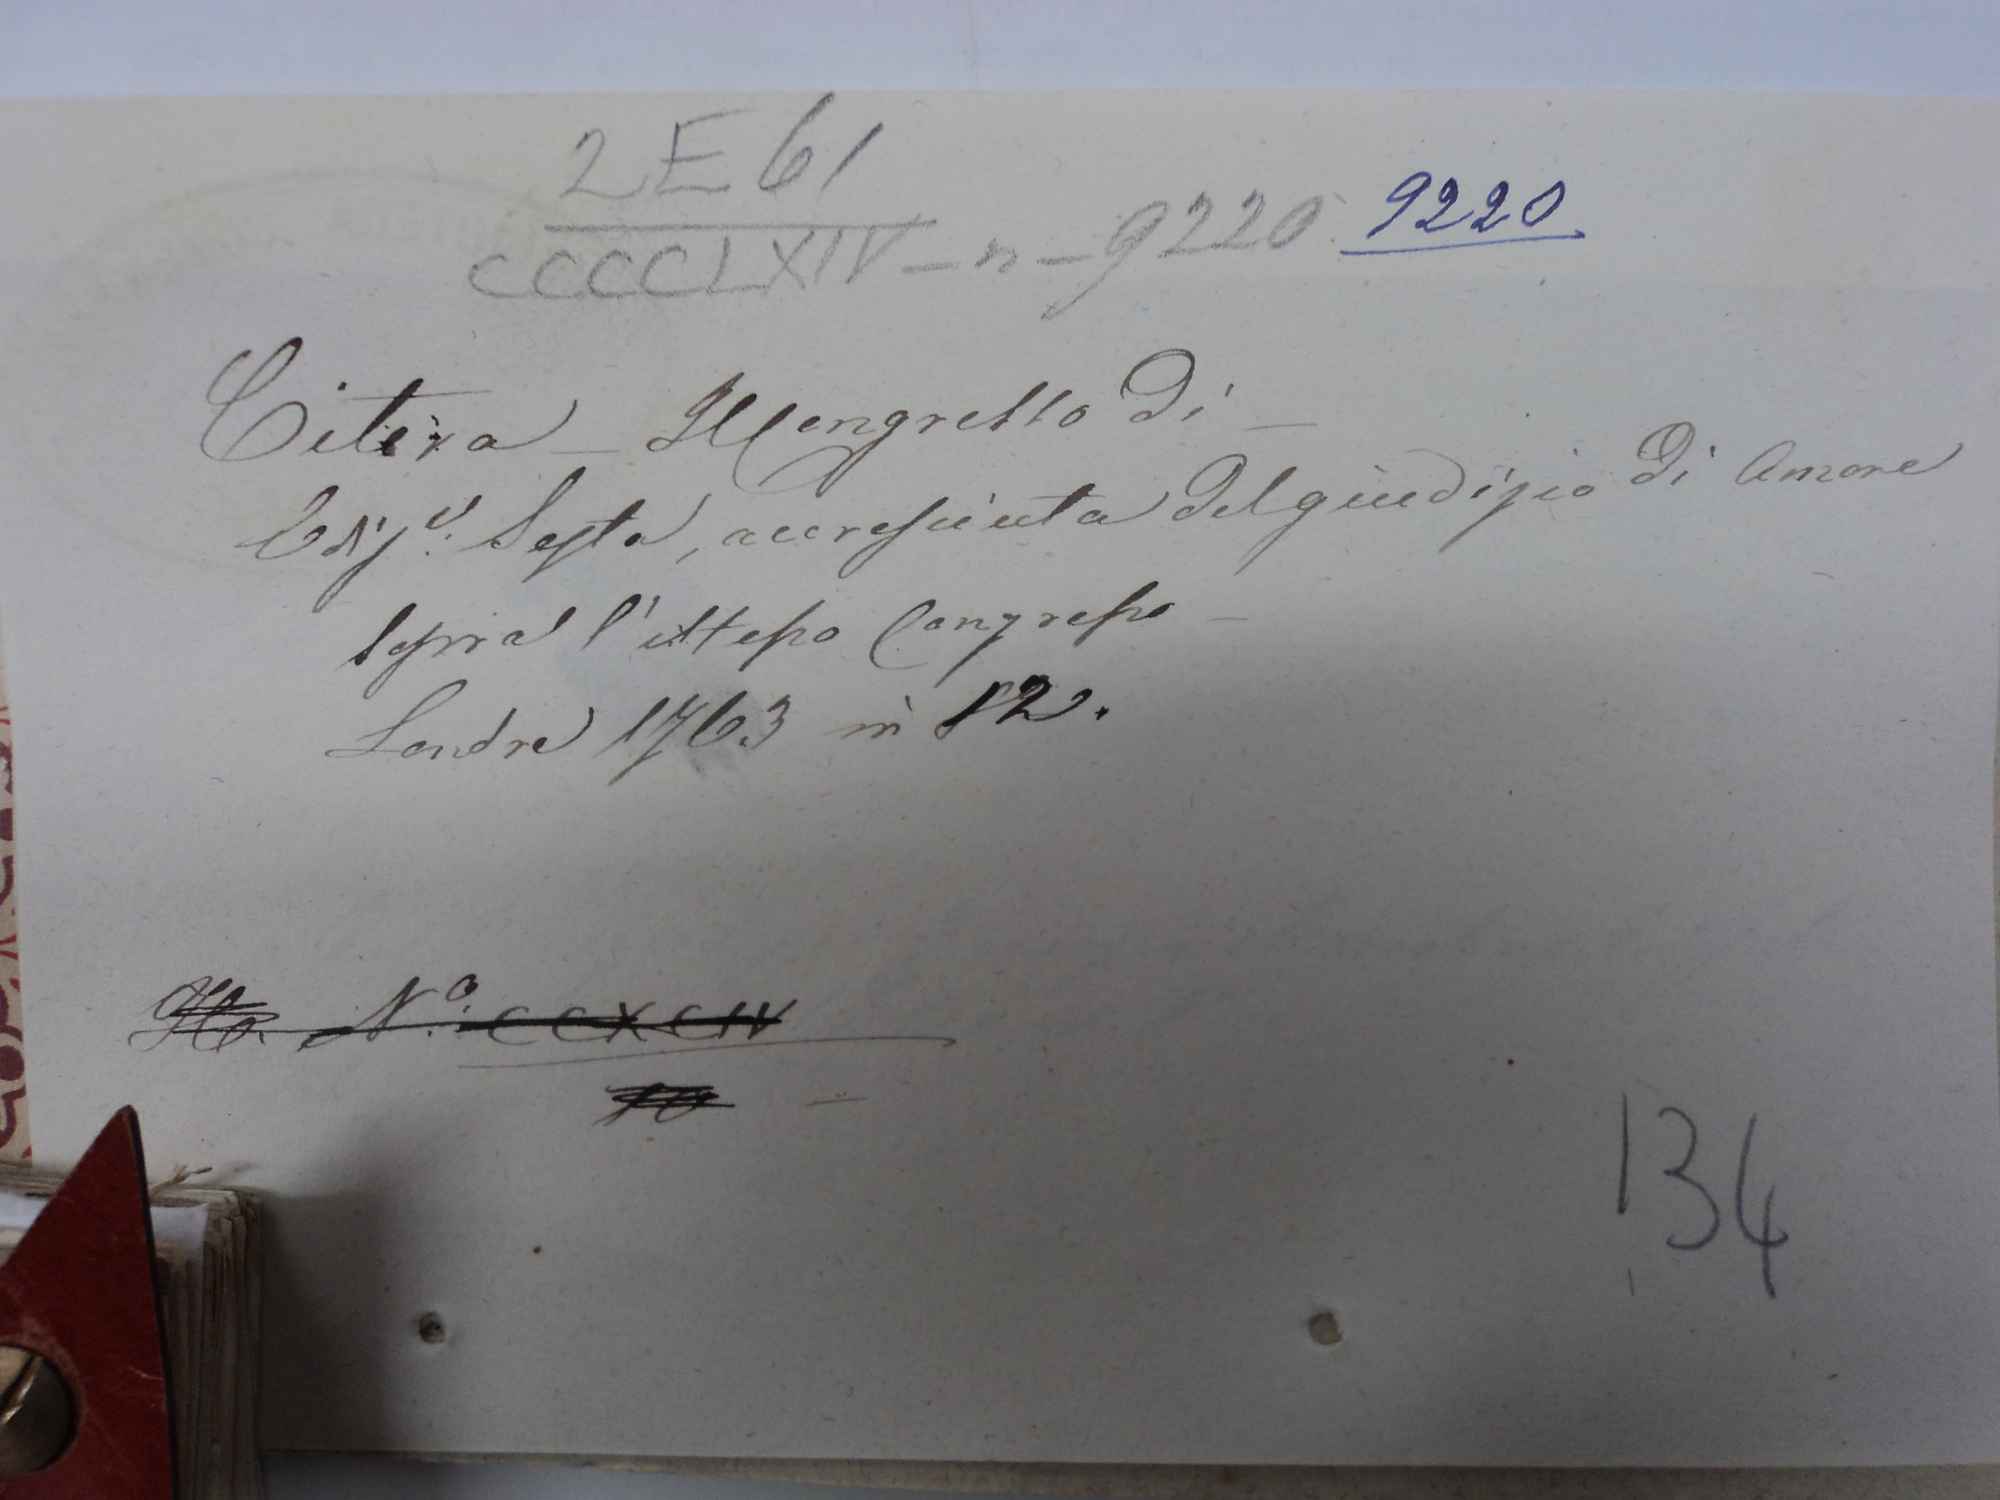 2E61
CCCCLXIV - n - 9220 9220
Citera - Il Congresso di -
Ediz.e Sesta, accresciuta del giudizio di Amore
sopra l'istesso Congresso -
Londra 1763 in 12.
N.o CCXCIV
134